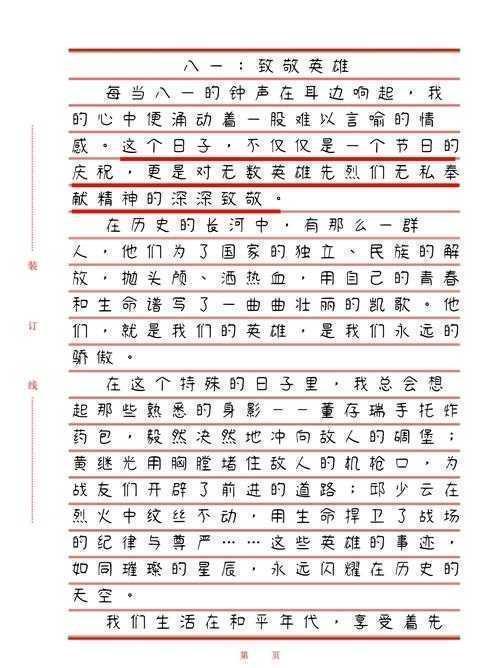 八一：致敬英雄
每当八一的钟声在耳边响起，我
的心中便涌动着一股难以言喻的情
感。这个日子，不仅仅是一个节日的
庆祝，更是对无数英雄先烈们无私奉
献精神的深深致敬。
在历史的长河中，有那么一群
人，他们为了国家的独立、民族的解
放，抛头颅、洒热血，用自己的青春
和生命谱写了一曲曲壮丽的凯歌。他
们，就是我们的英雄，是我们永远的
骄傲。
在这个特殊的日子里，我总会想
起那些熟悉的身影——董存瑞手托炸
药包，毅然决然地冲向敌人的碉堡；
黄继光用胸膛堵住敌人的机枪口，为
战友们开辟了前进的道路；邱少云在
烈火中纹丝不动，用生命捍卫了战场
的纪律与尊严……这些英雄的事迹，
如同璀璨的星辰，永远闪耀在历史的
天空。
我们生活在和平年代，享受着先
装
订
线
第 页